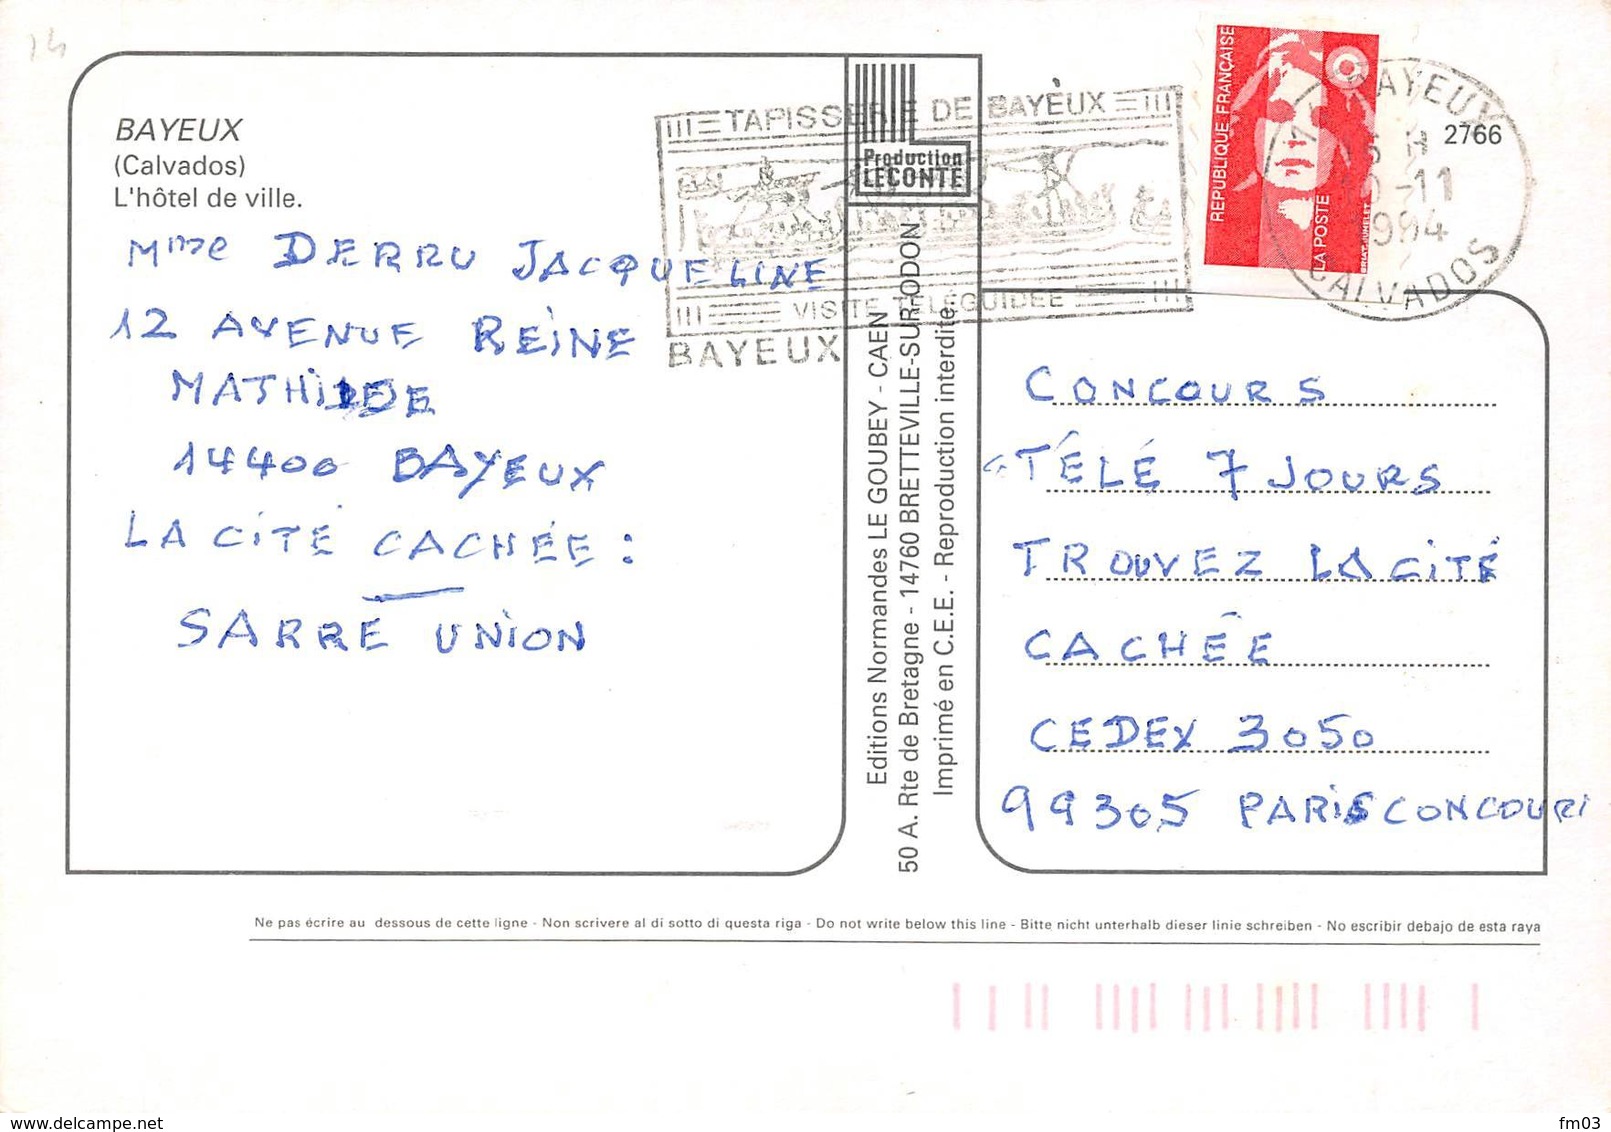 14
BAYEUX
(Calvados)
L'hôtel de ville.
Mme DERRU JACQUELINE
12 AVENUE REINE
MATHILDE
14400 BAYEUX
LA CITÉ CACHÉE :
SARRE UNION
TAPISSERIE DE BAYEUX
VISITE TÉLÉGUIDÉE
BAYEUX
Production
LECONTE
Editions Normandes LE GOUBEY - CAEN
50 A. Rte de Bretagne - 14760 BRETTEVILLE-SUR-ODON
Imprimé en C.E.E. - Reproduction interdite.
REPUBLIQUE FRANÇAISE
LA POSTE
BRIAT-JUMELET
BAYEUX
H
-11
1994
CALVADOS
2766
CONCOURS
TÉLÉ 7 JOURS
TROUVEZ LA CITÉ
CACHÉE
CEDEX 3050
99305 PARIS CONCOURS
Ne pas écrire au dessous de cette ligne - Non scrivere al di sotto di questa riga - Do not write below this line - Bitte nicht unterhalb dieser linie schreiben - No escribir debajo de esta raya
www.delcampe.net
fm03